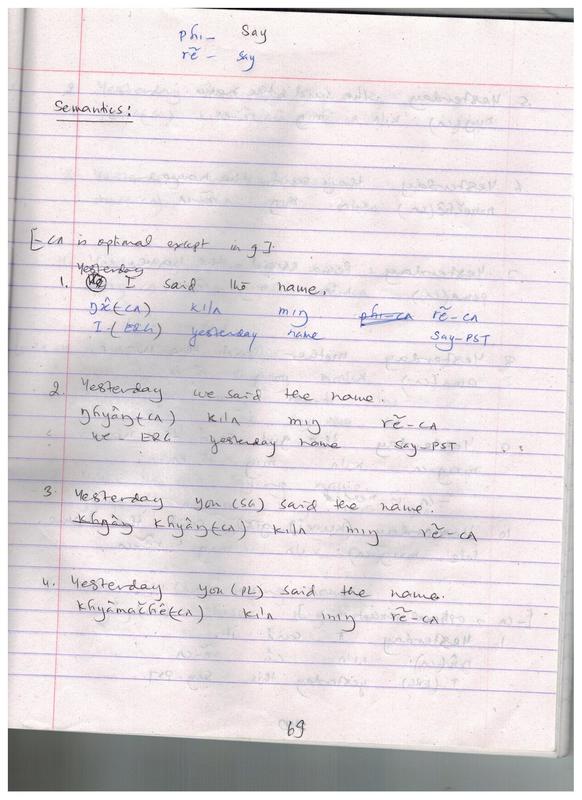 phi- Say
rẽ - say
Semantics:
[-cʌ is optimal except in 9].
Yesterday
1. I said the name.
ŋʌ̂(-cʌ) kilʌ miŋ phi-cʌ rẽ-cʌ
I-(ERG) yesterday name Say-PST
2. Yesterday we said the name.
ŋhyâŋ(-cʌ) kilʌ miŋ rẽ-cʌ
we-ERG yesterday name Say-PST
3. Yesterday you (SG) said the name.
khyâŋ khyâŋ(-cʌ) kilʌ miŋ rẽ-cʌ
4. Yesterday you (PL) said the name.
khyâmačhê(-cʌ) kilʌ miŋ rẽ-cʌ
69